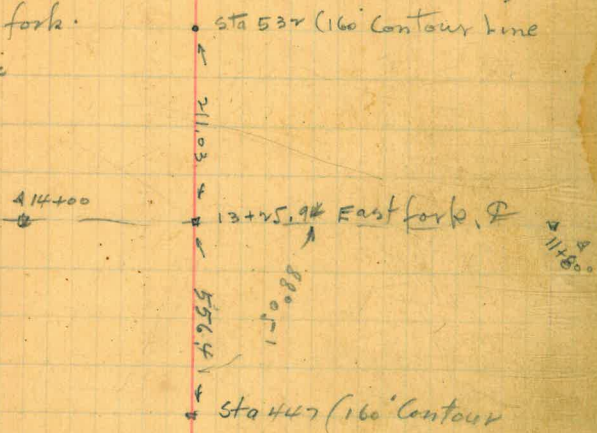 fork.
Sta 532 (160' Contour Line
211.03
14+00
13+25.94 East fork, ℄
11+800
88°05'
556.41
Sta 447 (160' Contour